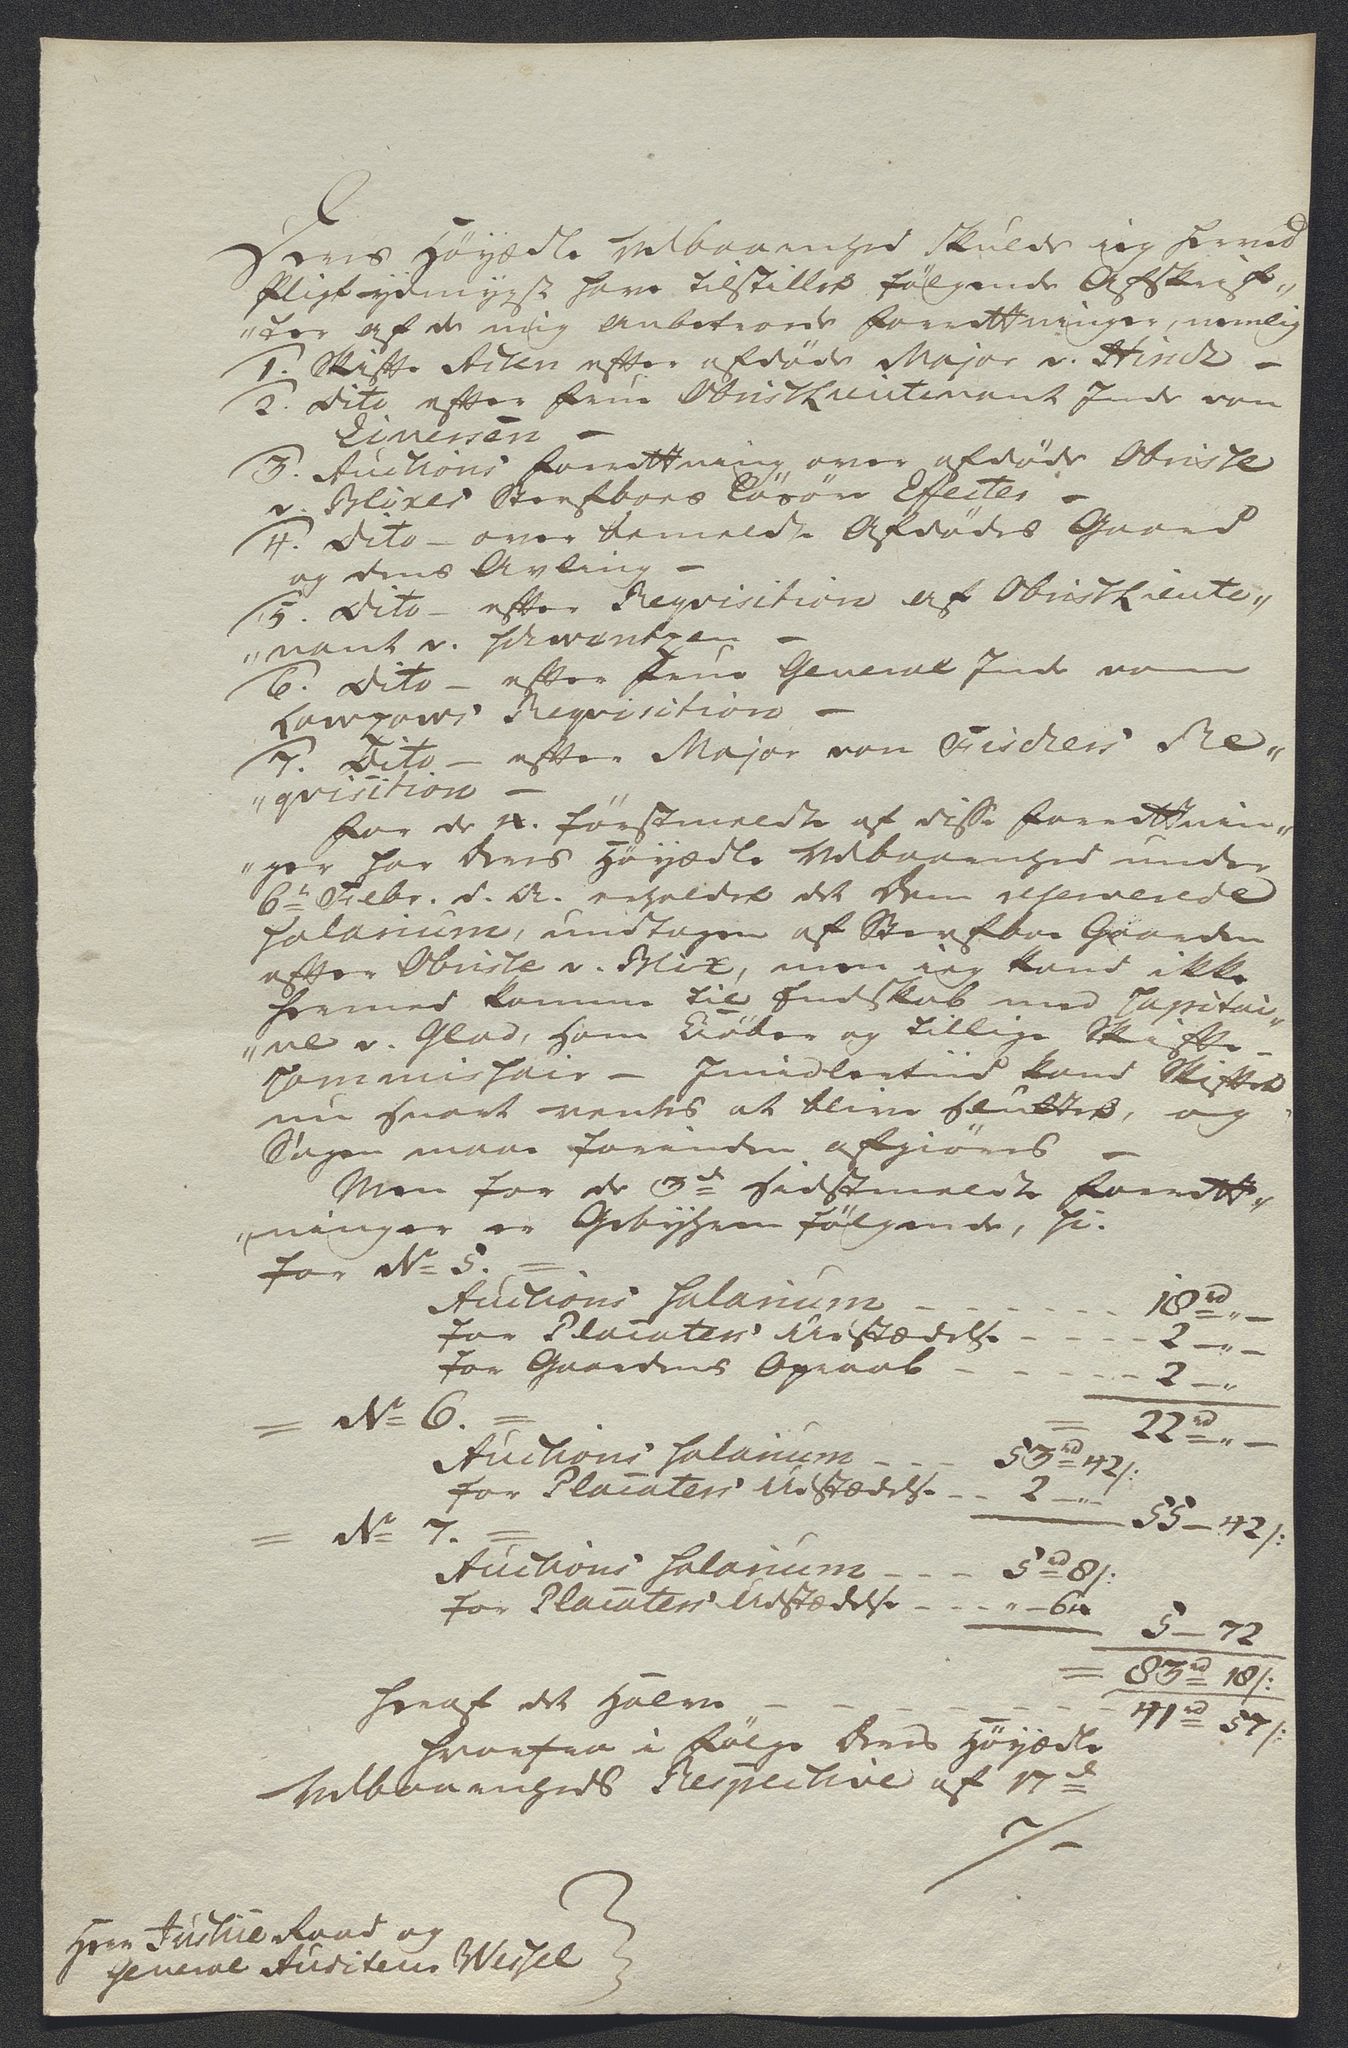 Deres Höyædle Velbaarenhed skulde ieg herved
Pligt-ydmygst have tilstillet fölgende Afskrif„
„ter af de mig anbetroede Forrettninger, nemlig
1. Skifte Acten efter afdöde Major v. Hinck –
2. Dito efter Frue Obristlieutenant Inde von
Eiversen –
3. Auctions Forrettning over afdöde Obriste
v. Blixes Sterfboes Lösöre Effecter –
4. Dito – over bemeldte Afdödes Gaard
og dens Avling –
5. Dito – efter Reqvisition af Obristlieute„
„nant v. Schwentzen –
6. Dito – efter Frue General Inde von
Lowzows Reqvisition –
7. Dito – efter Major von Fischers Re„
„qvisition –
For de 4. förstmeldte af disse Forrettnin„
„ger har Deres Höyædle Velbaarenhed under
6te Febr. d. A. erholdet det Dem reserverede
Salarium, undtagen af Sterfboe Gaarden
efter Obriste v. Blix, men ieg kand ikke
hermed komme til Endskab med Capitai„
„ne v. Glad, som Kiöber og tillige Skifte-
Commissair – Imidlertiid kand Skiftet
nu snart ventes at blive sluttet, og
Sagen maae forinden afgiöres –
Men for de 3de sidstmeldte Forrett„
„ninger er Gebyhren fölgende, ſc.
For No 5. =
Auctions Salarium - - - - - - 18 rd „ –
for Placaters Udstædelse - - - - 2 – „ –
for Gaardens Opraab - - - - - 2 – „
= No 6. = = 22 rd „ –
Auctions Salarium - - - 53 rd 42 /:
for Placaters Udstædelse - - 2 – „ – 55 – 42 /:
= No 7. =
Auctions Salarium - - - 5 rd 8 /:
for Placaters Udstædelse - - - „ – 64 5 – 72
= 83 rd 18 /:
heraf det Halve - - - - - - - 41 rd 57 /:
hvorfra i Fölge Deres Höyædle
Velbaarenheds Respective af 17de
/–
Herr Justice Raad og
General Auditeur Wessel